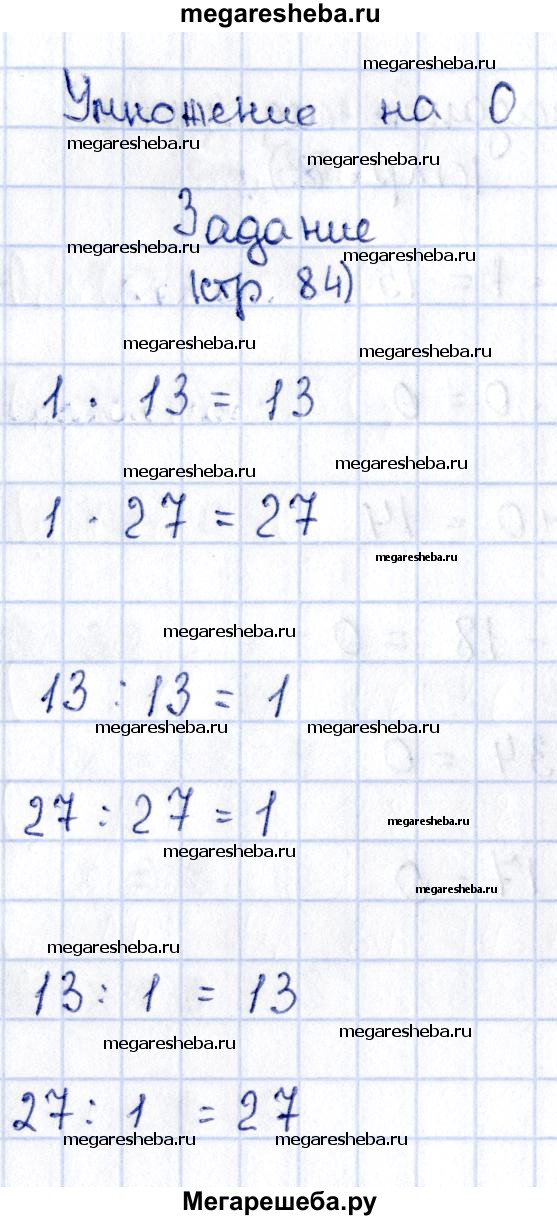 megaresheba.ru
megaresheba.ru
Умножение на 0
megaresheba.ru
megaresheba.ru
Задание
megaresheba.ru
megaresheba.ru
(стр. 84)
megaresheba.ru
megaresheba.ru
1 · 13 = 13
megaresheba.ru
megaresheba.ru
1 · 27 = 27
megaresheba.ru
megaresheba.ru
13 : 13 = 1
megaresheba.ru
megaresheba.ru
27 : 27 = 1
megaresheba.ru
megaresheba.ru
megaresheba.ru
megaresheba.ru
13 : 1 = 13
megaresheba.ru
megaresheba.ru
27 : 1 = 27
megaresheba.ru
megaresheba.ru
Мегарешеба.ру